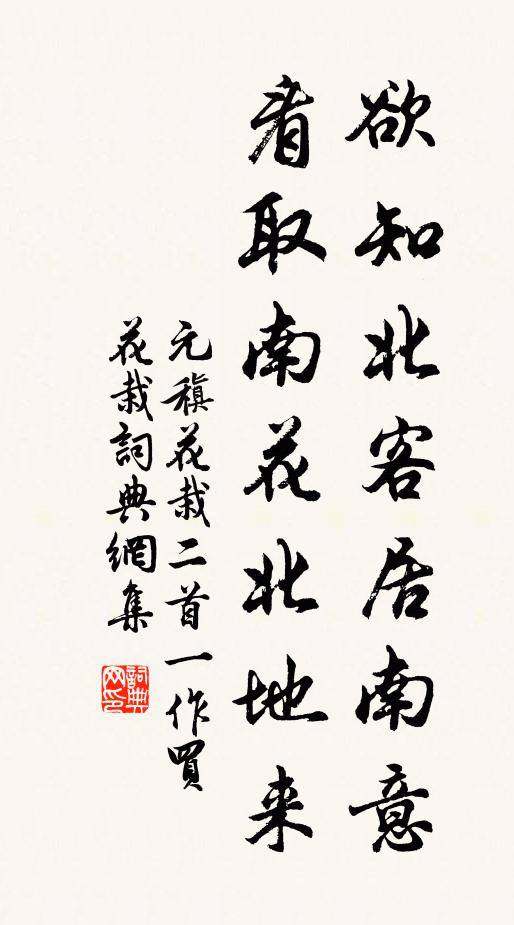 欲知北客居南意
看取南花北地来
元稹花栽二首一作買
花栽詞典網集
詞典網印